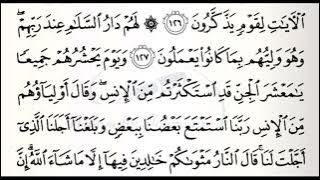 ٱلۡأٓيَٰتِ لِقَوۡمٖ يَذَّكَّرُونَ ١٢٦ ۞ لَهُمۡ دَارُ ٱلسَّلَٰمِ عِندَ رَبِّهِمۡۖ
وَهُوَ وَلِيُّهُم بِمَا كَانُواْ يَعۡمَلُونَ ١٢٧ وَيَوۡمَ يَحۡشُرُهُمۡ جَمِيعٗا
يَٰمَعۡشَرَ ٱلۡجِنِّ قَدِ ٱسۡتَكۡثَرۡتُم مِّنَ ٱلۡإِنسِۖ وَقَالَ أَوۡلِيَآؤُهُم
مِّنَ ٱلۡإِنسِ رَبَّنَا ٱسۡتَمۡتَعَ بَعۡضُنَا بِبَعۡضٖ وَبَلَغۡنَآ أَجَلَنَا ٱلَّذِيٓ
أَجَّلۡتَ لَنَاۚ قَالَ ٱلنَّارُ مَثۡوَىٰكُمۡ خَٰلِدِينَ فِيهَآ إِلَّا مَا شَآءَ ٱللَّهُۗ إِنَّ